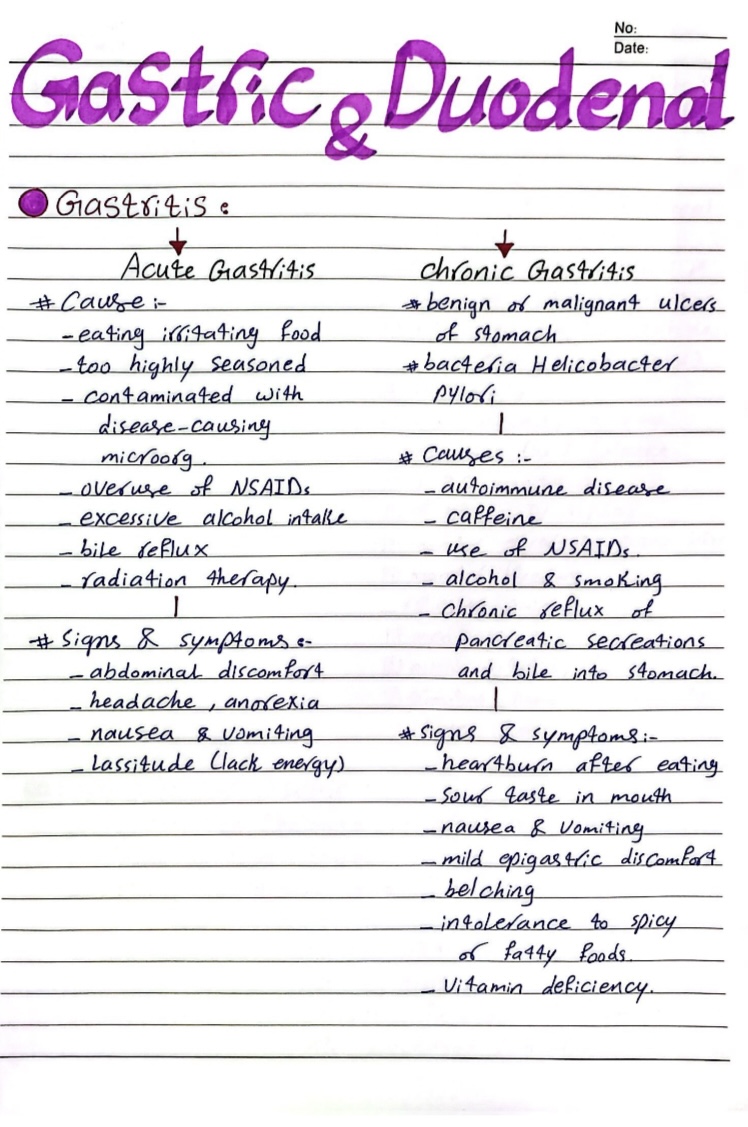 No:
Date:
Gastric & Duodenal
Gastritis :
Acute Gastritis
# Cause :-
- eating irritating food
- too highly seasoned
- contaminated with
disease-causing
microorg.
- overuse of NSAIDs
- excessive alcohol intake
- bile reflux
- radiation therapy.
# Signs & symptoms :-
- abdominal discomfort
- headache , anorexia
- nausea & vomiting
- Lassitude (lack energy)
chronic Gastritis
* benign or malignant ulcers
of stomach
* bacteria Helicobacter
pylori
# Causes :-
- autoimmune disease
- caffeine
- use of NSAIDs.
- alcohol & smoking
- chronic reflux of
pancreatic secreations
and bile into stomach.
* Signs & symptoms :-
- heartburn after eating
- sour taste in mouth
- nausea & vomiting
- mild epigastric discomfort
- belching
- intolerance to spicy
or fatty foods.
- vitamin deficiency.